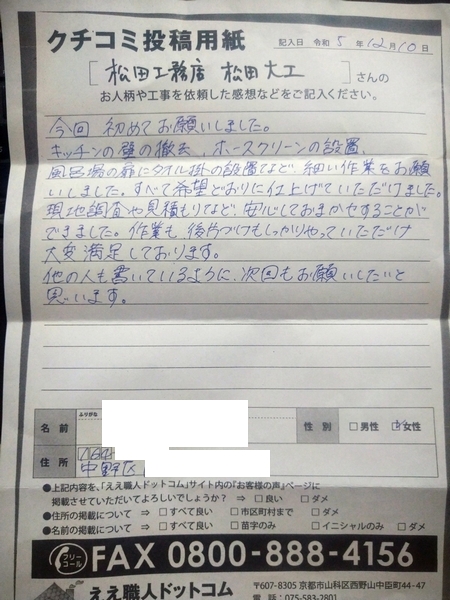 クチコミ投稿用紙
記入日 令和 5 年 12月 10日
[松田工務店 松田大工]さんの
お人柄や工事を依頼した感想などをご記入ください。
今回 初めてお願いしました。
キッチンの壁の撤去、ホースクリーンの設置、
風呂場の扉にタオル掛の設置など、細い作業をお願
いしました。すべて希望どおりに仕上げていただけました。
現地調査や見積もりなど、安心しておまかせすることが
できました。作業も後片づけもしっかりやっていただけ
大変満足しております。
他の人も書いているように、次回もお願いしたいと
思います。
ふりがな
名前
性別 □男性 □女性
住所
中野区
●上記内容を、「ええ職人ドットコム」サイト内の『お客様の声』ページに
掲載させていただいてよろしいでしょうか? ⇒ □良い □ダメ
●住所の掲載について ⇒ □すべて良い □市区町村まで □ダメ
●名前の掲載について ⇒ □すべて良い □苗字のみ □イニシャルのみ □ダメ
フリーコール FAX 0800-888-4156
ええ職人ドットコム
〒607-8305 京都市山科区西野山中臣町44-47
電話:075-583-2801